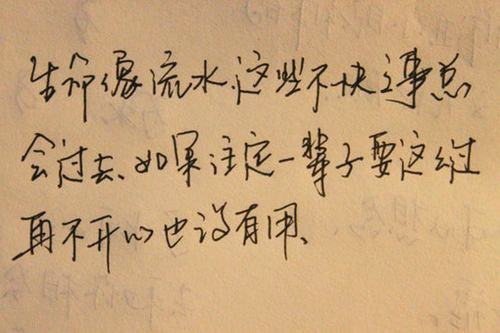 生命像流水,这些不快之事总
会过去、如果注定一辈子要这么过
再不开心也没有用、